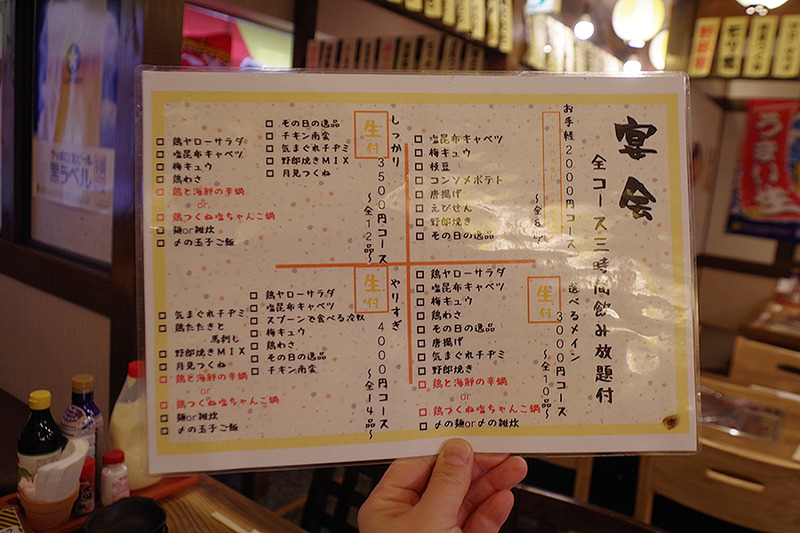 宴会
全コース三時間飲み放題付
お手軽2000円コース
～全8品～
塩昆布キャベツ
梅キュウ
枝豆
コンソメポテト
唐揚げ
えびせん
野郎焼き
その日の逸品
選べるメイン
3000円コース
～全10品～
生付
鶏ヤローサラダ
塩昆布キャベツ
梅キュウ
鶏わさ
その日の逸品
唐揚げ
気まぐれチヂミ
野郎焼き
鶏と海鮮の辛鍋
or
鶏つくね塩ちゃんこ鍋
〆の麺or〆の雑炊
しっかり
3500円コース
～全12品～
生付
その日の逸品
チキン南蛮
気まぐれチヂミ
野郎焼きMIX
月見つくね
鶏ヤローサラダ
塩昆布キャベツ
梅キュウ
鶏わさ
鶏と海鮮の辛鍋
or
鶏つくね塩ちゃんこ鍋
麺or雑炊
〆の玉子ご飯
やりすぎ
4000円コース
～全14品～
生付
鶏ヤローサラダ
塩昆布キャベツ
スプーンで食べる冷奴
梅キュウ
鶏わさ
その日の逸品
チキン南蛮
気まぐれチヂミ
鶏たたきと
馬刺し
野郎焼きMIX
月見つくね
鶏と海鮮の辛鍋
or
鶏つくね塩ちゃんこ鍋
麺or雑炊
〆の玉子ご飯
サッポロ生ビール
黒ラベル
うまい生